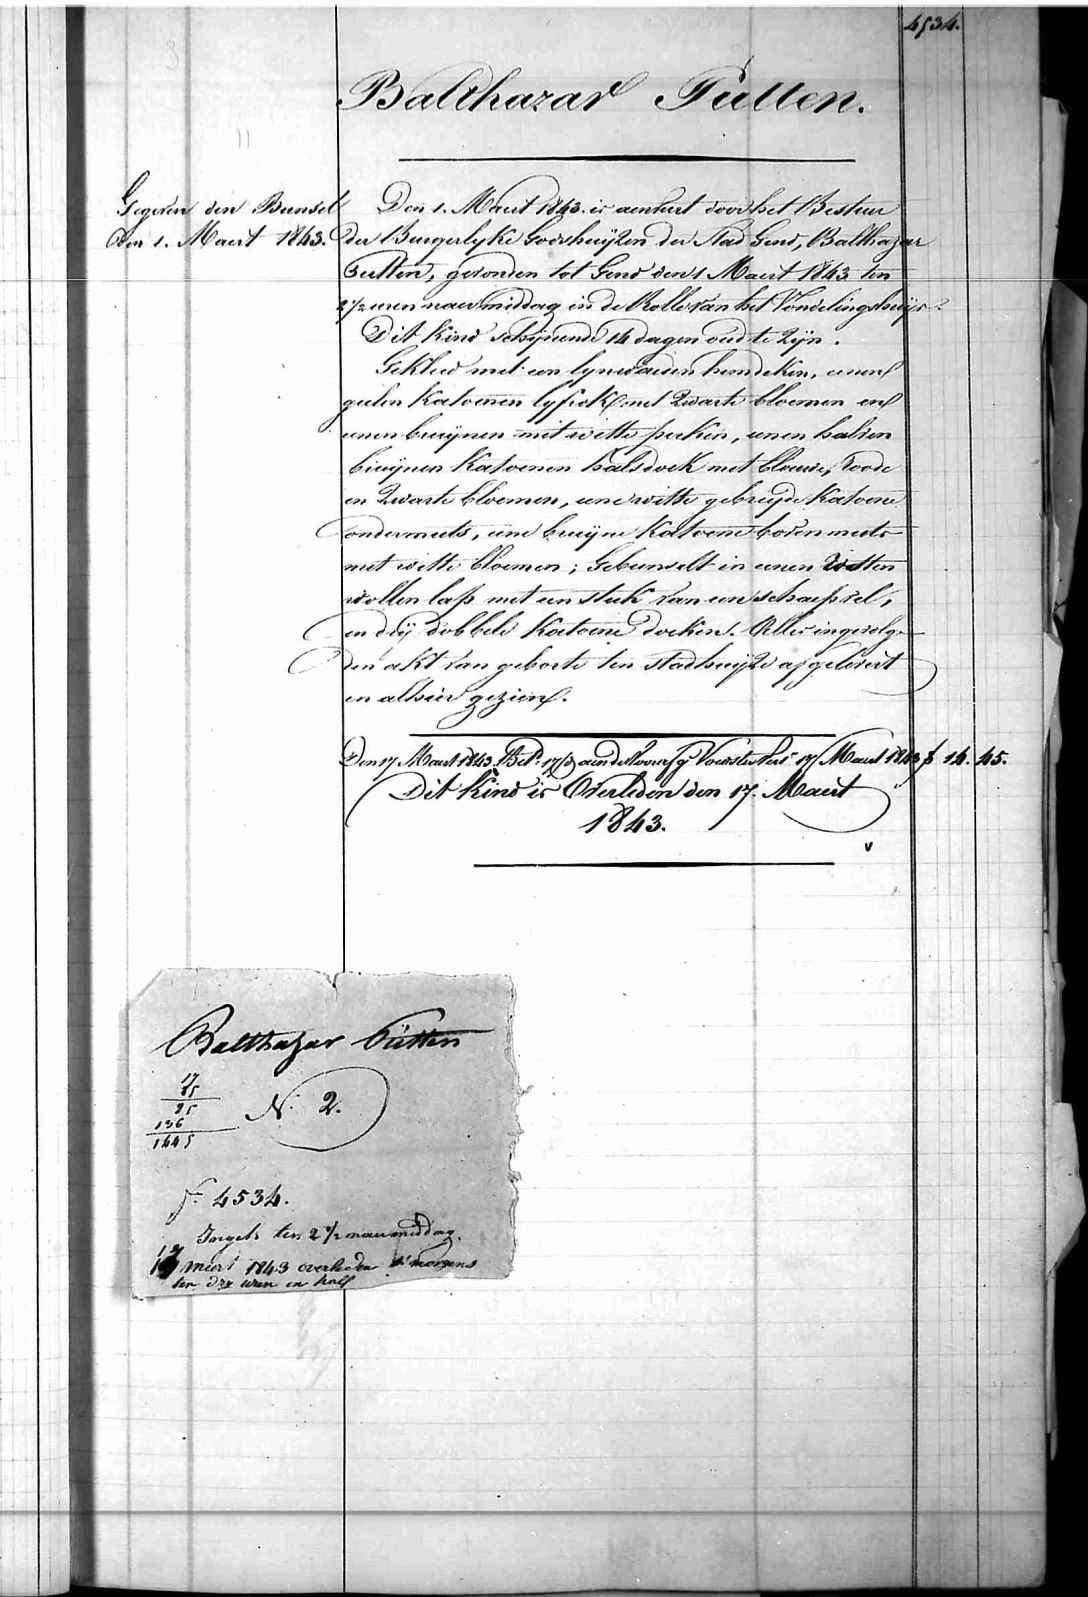 4534.
Balthazar Tutten.
Gegeven den Bunsel
den 1. Maert 1843.
Den 1. Maert 1843. is aenveert door het Bestuer
der Burgerlyke Godshuijzen der Stad Gend, Balthazar
Tutten, gevonden tot Gend den 1 Maert 1843 ten
2 1/2 uren naer middag in de Rolle van het Vondelinghuijs.
Dit Kind schijnende 14 dagen oud te zyn.
Gekleed met een lynwaeden hemdeken, eenen
geelen Katoenen lyfrok met zwarte bloemen en
eenen bruijnen met witte perken, eenen halven
bruijnen Katoenen halsdoek met blauwe, roode
en zwarte bloemen, eene witte gebreijde Katoene
ondermuts, eene bruijne Katoene bovenmuts
met witte bloemen; Gebunselt in eenen witten
wollen lap met een stuk van een schaepsvel,
en dry dobbele Katoene doeken. Alles ingevolge
den akt van geboorte ten Stadhuijze afgelevert
en alhier gezien.
Den 17 Maert 1843 17 Maert 1843 f 14. 45.
Dit Kind is Overleden den 17. Maert
1843.
v
Balthazar Tutten
17
85
85
136
1445
N. 2.
f. 4534.
Ingeb. ten 2 1/2 naermiddag.
17 meert 1843 overleden 's morgens
ten dry uren en half